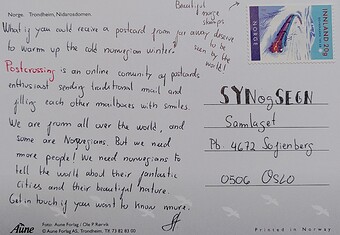 Norge. Trondheim, Nidarosdomen.
Beautiful
norge
stamps
deserve to
be seen
by the
world!
INNLAND 20g
NORGE
What if you could receive a postcard from far away
to warm up the cold norwegian winter?
Postcrossing is an online comunity of postcards
enthusiast sending traditional mail and
filling each other mailboxes with smiles.
We are from all over the world, and
some are Norwegians. But we need
more people! We need norwegians to
tell the world about their fantastic
cities and their beautiful nature.
Get in touch if you want to know more.
SYN og SEGN
Samlaget
Pb. 4672 Sofienberg
0506 OSLO
Aune
Foto: Aune Forlag / Ole P. Rørvik
© Aune Forlag AS, Trondheim, Tlf 73 82 83 00
Printed in Norway